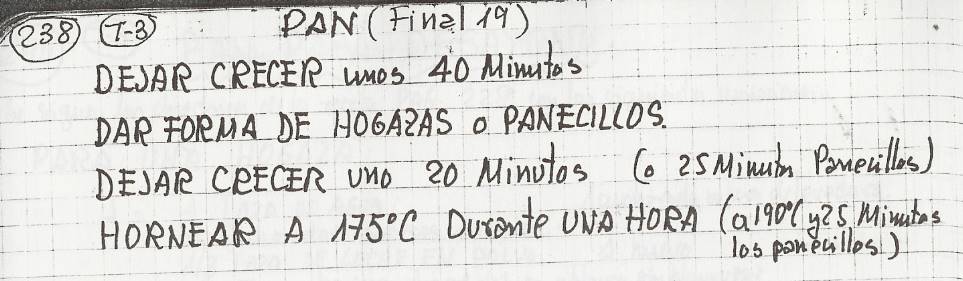 238 T-3 PAN (Final 19)
DEJAR CRECER unos 40 Minutos
DAR FORMA DE HOGAZAS o PANECILLOS.
DEJAR CRECER UNO 20 Minutos (o 25 Minutos Panecillos)
HORNEAR A 175°C Durante UNA HORA (a 190°C y 25 Minutos
los panecillos)